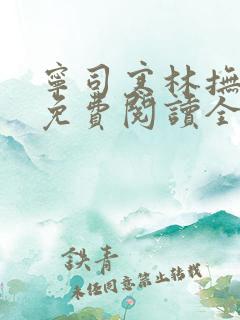 寧司寒林撫
免費閱讀全
鉄青
未經同意禁止轉載